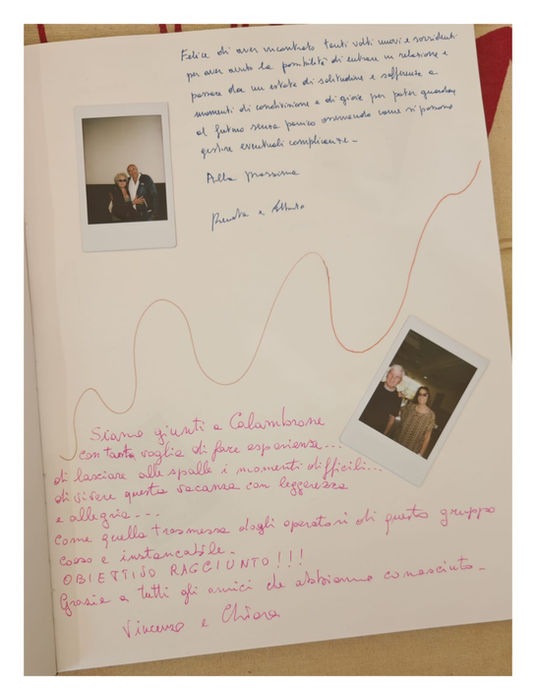 Felice di aver incontrato tanti volti nuovi e sorridenti
per aver avuto la possibilità di entrare in relazione e
passare da un estate di solitudine e sofferenza a
momenti di condivisione e di gioia per poter guardare
al futuro senza panico come si possono
gestire eventuali complicanze -
Alla prossima
Renata e Alberto
Siamo giunti a Calambrone
con tanta voglia di fare esperienza...
di lasciare alle spalle i momenti difficili...
di vivere questa vacanza con leggerezza
e allegria...
come quella trasmessa dagli operatori di questo gruppo
coeso e instancabile.
OBIETTIVO RAGGIUNTO!!!
Grazie a tutti gli amici che abbiamo conosciuto -
Vincenzo e Chiara